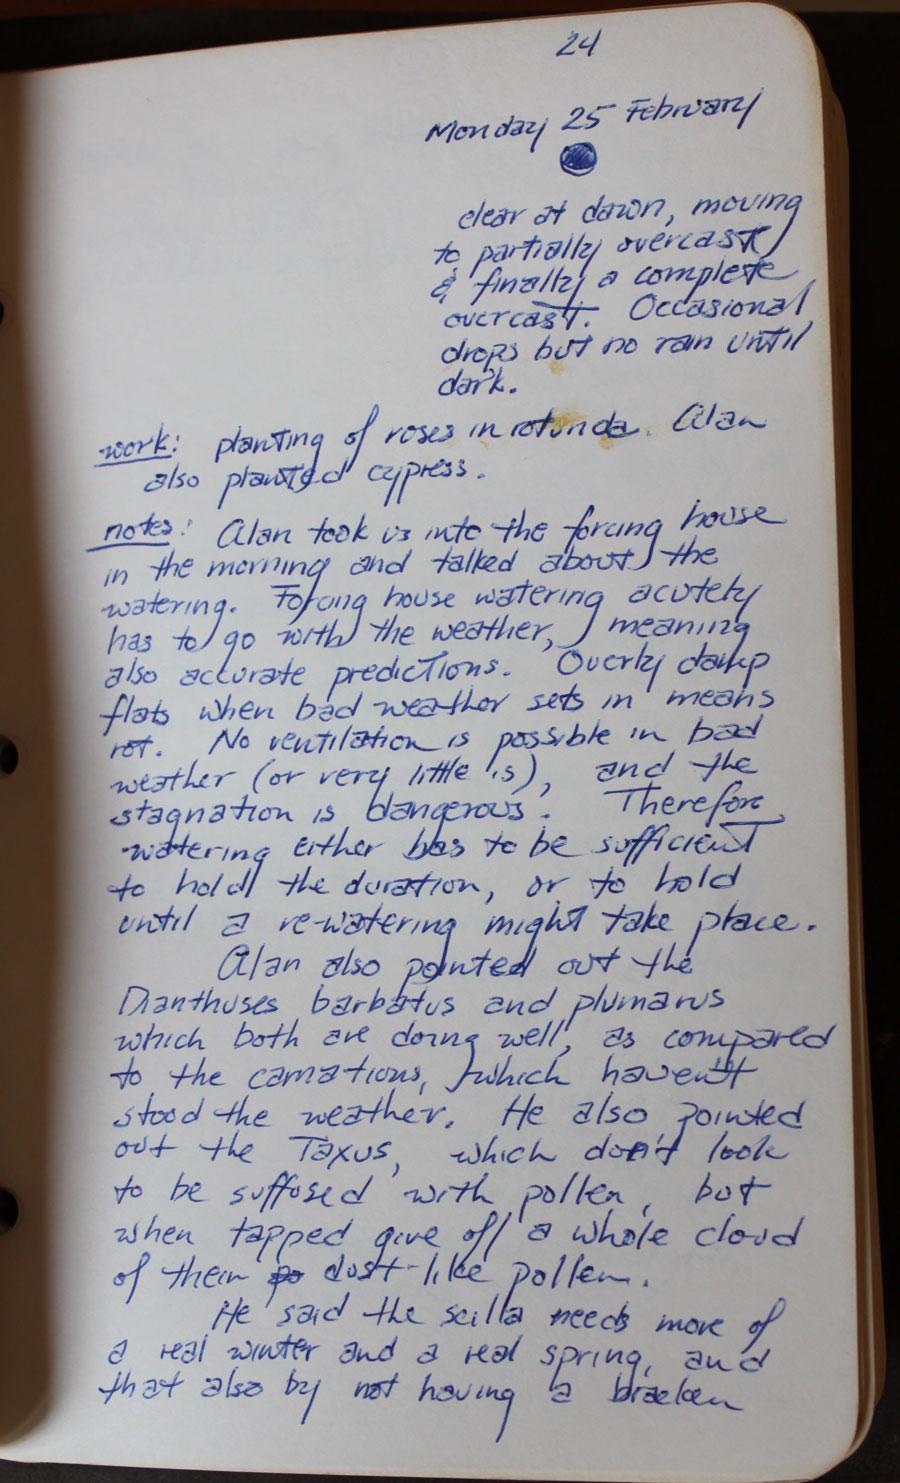 24
Monday 25 February
clear at dawn, moving
to partially overcast
& finally a complete
overcast. Occasional
drops but no rain until
dark.
work: planting of roses in rotunda. Alan
also planted cypress.
notes: Alan took us into the forcing house
in the morning and talked about the
watering. Forcing house watering acutely
has to go with the weather, meaning
also accurate predictions. Overly damp
flats when bad weather sets in means
rot. No ventilation is possible in bad
weather (or very little is), and the
stagnation is dangerous. Therefore
watering either has to be sufficient
to hold the duration, or to hold
until a re-watering might take place.
Alan also pointed out the
Dianthuses barbatus and plumarus
which both are doing well, as compared
to the carnations, which haven't
stood the weather. He also pointed
out the Taxus, which don't look
to be suffused with pollen, but
when tapped give off a whole cloud
of their po dust-like pollen.
He said the scilla needs more of
a real winter and a real spring, and
that also by not having a bracken